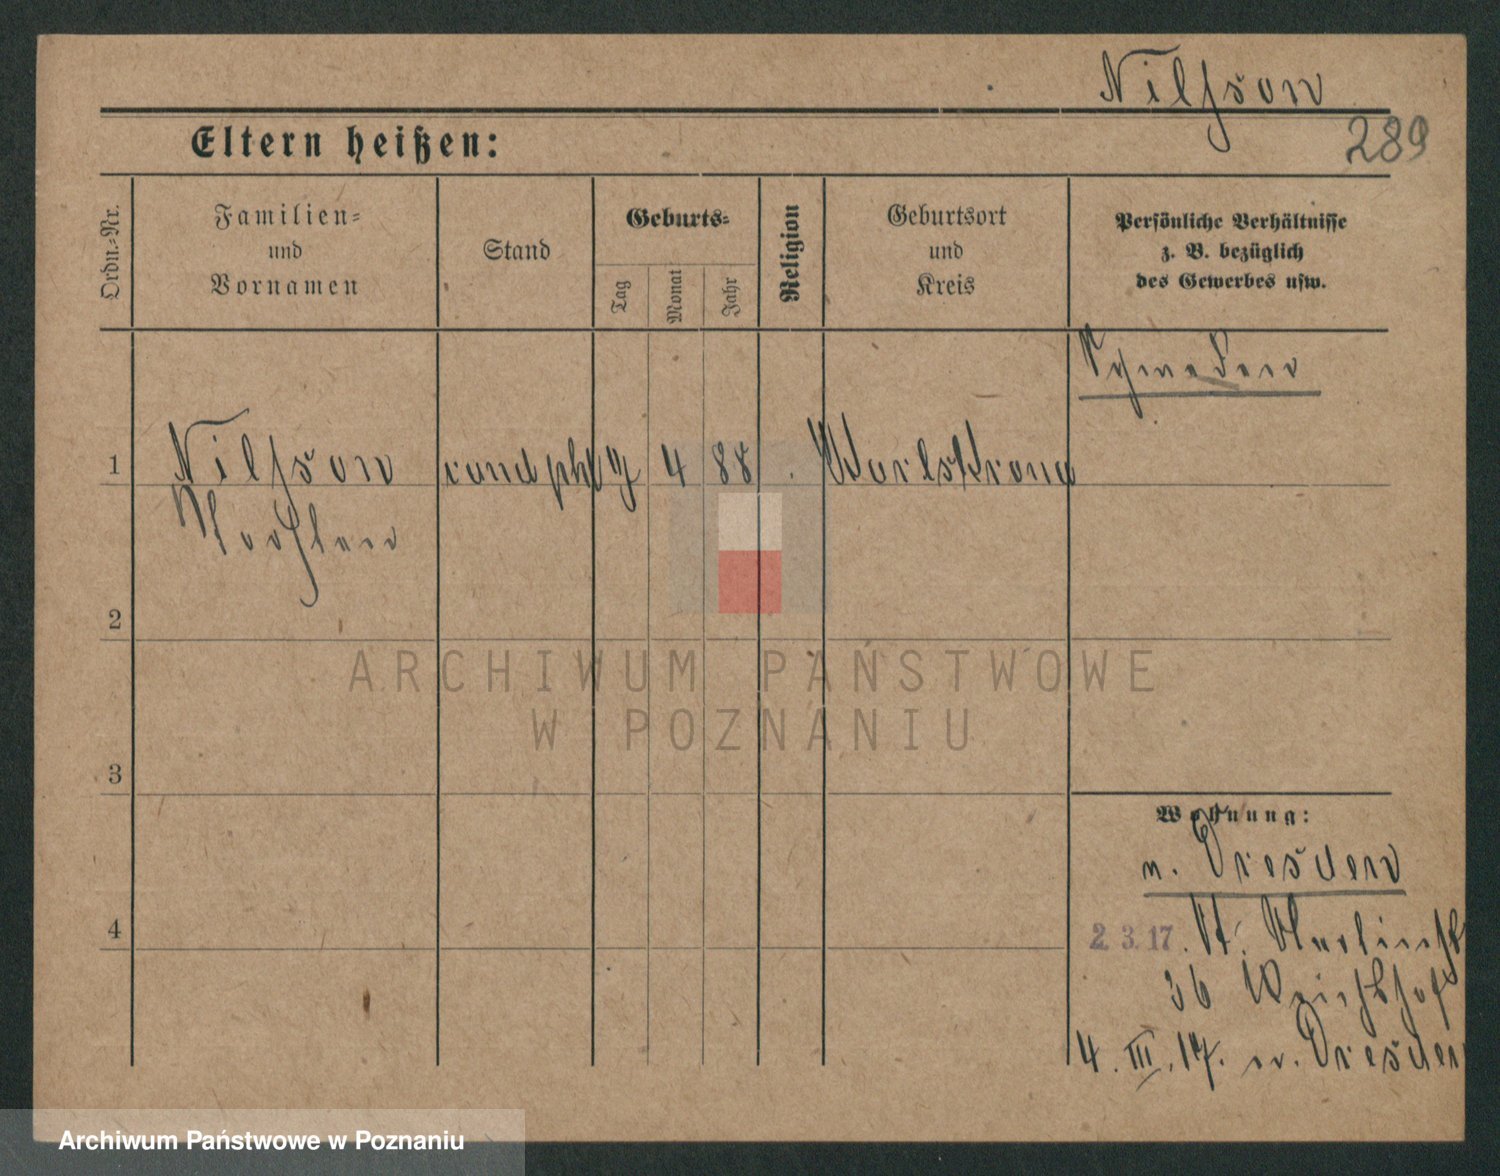 Nilsson
289
Eltern heißen:
Ordn.=Nr.
Familien=
und
Vornamen
Stand
Geburts=
Tag
Monat
Jahr
Religion
Geburtsort
und
Kreis
Persönliche Verhältnisse
z. B. bezüglich
des Gewerbes usw.
Schweden
1
Nilsson
cand phil
4
88
Karlskrona
2
ARCHIWUM PAŃSTWOWE
W POZNANIU
3
Wohnung:
n. Dresden
4
2.3.17. St. Martinstr
36 Reichshof
4. III. 17. n. Dresden
Archiwum Państwowe w Poznaniu